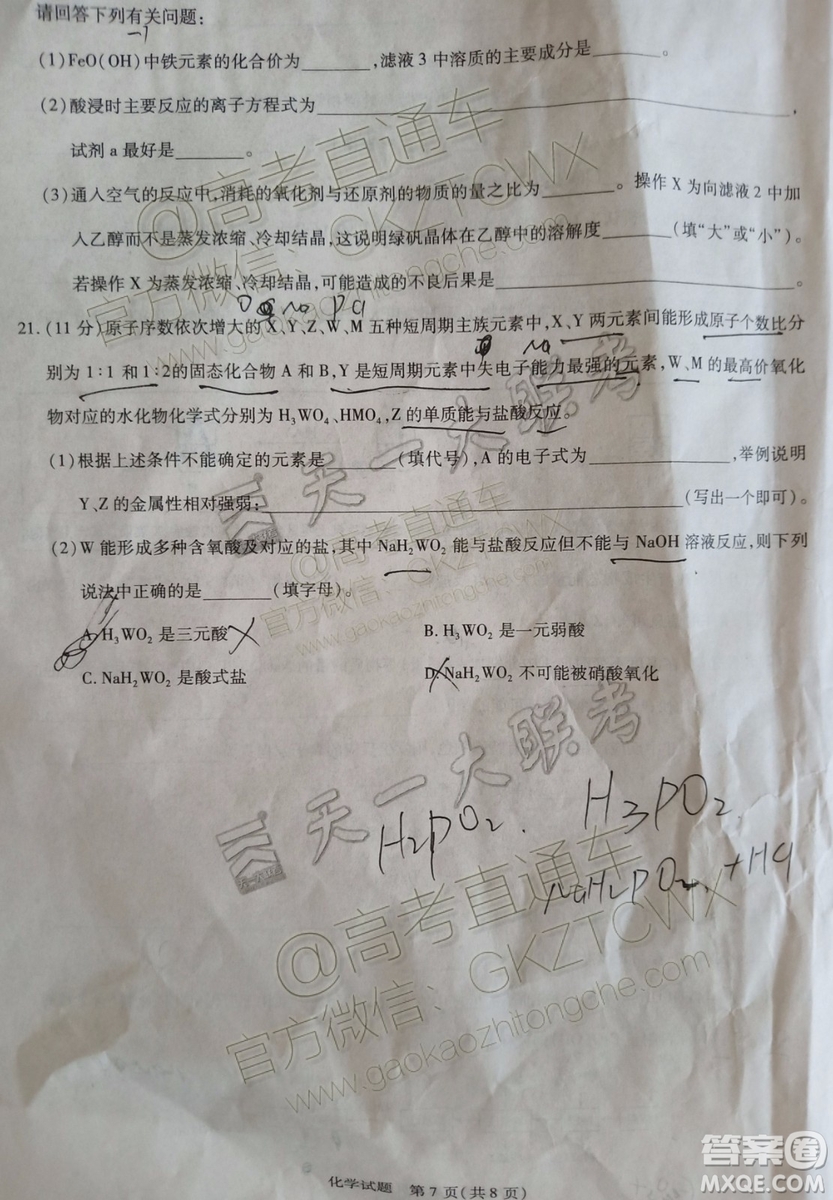 请回答下列有关问题：
(1)FeO(OH)中铁元素的化合价为______,滤液3中溶质的主要成分是______。
(2)酸浸时主要反应的离子方程式为______,
试剂a最好是______。
(3)通入空气的反应中,消耗的氧化剂与还原剂的物质的量之比为______。操作X为向滤液2中加
入乙醇而不是蒸发浓缩、冷却结晶,这说明绿矾晶体在乙醇中的溶解度______(填“大”或“小”)。
若操作X为蒸发浓缩、冷却结晶,可能造成的不良后果是______。
21.(11分)原子序数依次增大的X、Y、Z、W、M五种短周期主族元素中,X、Y两元素间能形成原子个数比分
别为1:1和1:2的固态化合物A和B,Y是短周期元素中失电子能力最强的元素,W、M的最高价氧化
物对应的水化物化学式分别为H₃WO₄、HMO₄,Z的单质能与盐酸反应。
(1)根据上述条件不能确定的元素是______(填代号),A的电子式为______,举例说明
Y、Z的金属性相对强弱:______(写出一个即可)。
(2)W能形成多种含氧酸及对应的盐,其中NaH₂WO₂能与盐酸反应但不能与NaOH溶液反应,则下列
说法中正确的是______(填字母)。
A.H₃WO₂是三元酸 B.H₃WO₂是一元弱酸
C.NaH₂WO₂是酸式盐 D.NaH₂WO₂不可能被硝酸氧化
天一大联考
H₂PO₂. H₃PO₂.
NaH₂PO₂. +HCl
@高考直通车
官方微信：GKZTCWX
www.gaokaozhitongche.com
化学试题 第7页(共8页)
答案圈
MXQE.COM